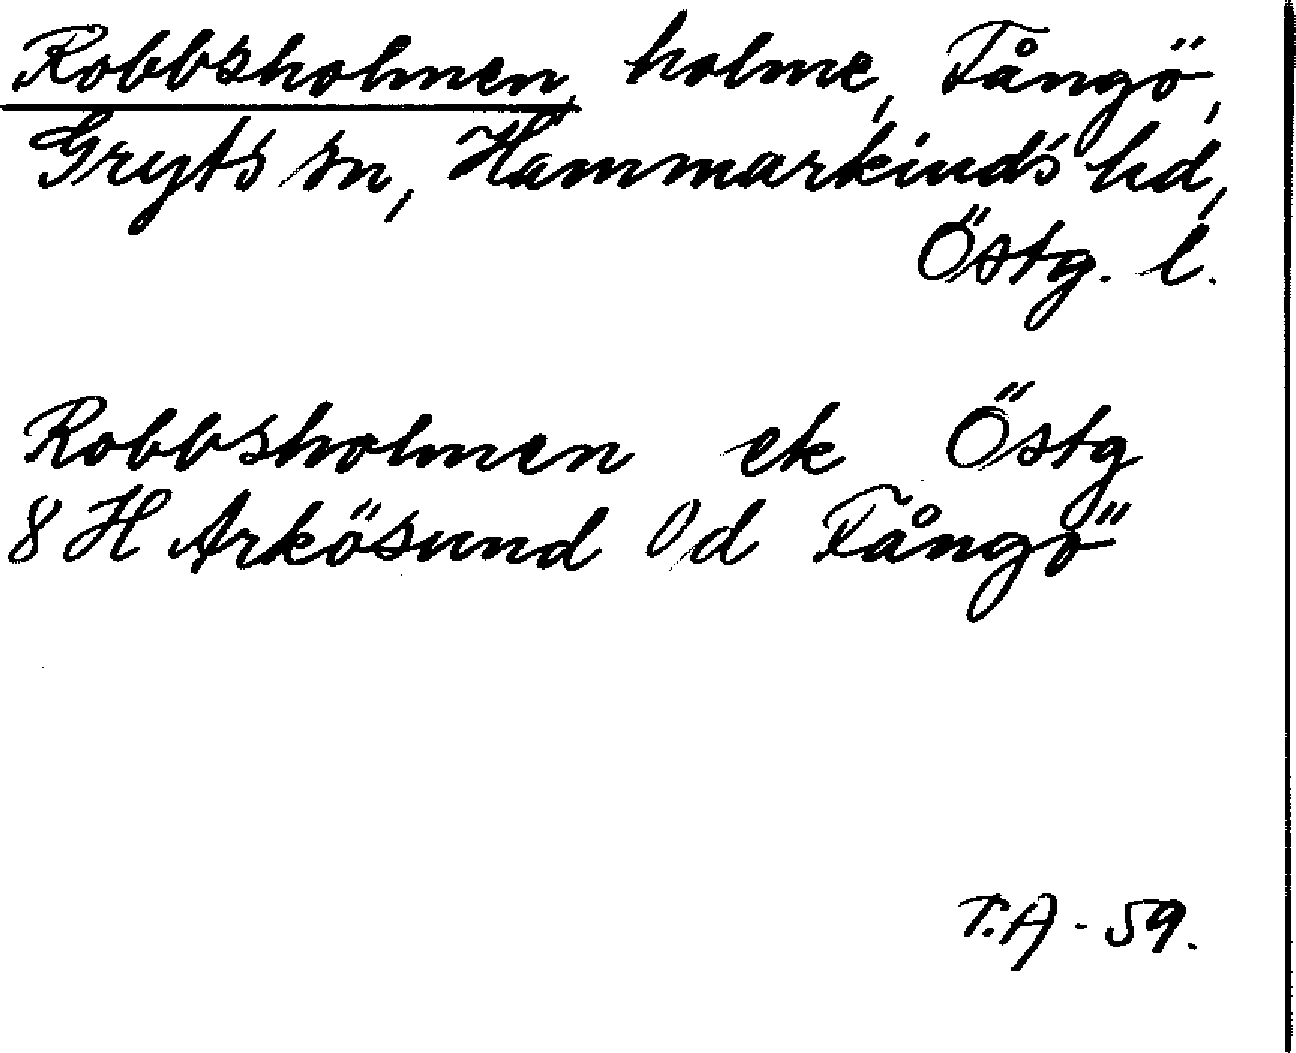 Robbsholmen, holme, Fångö,
Gryts sn, Hammarkinds hd,
Östg. l.
Robbsholmen ek Östg
8 H Arkösund 0/d Fångö
T.A - 59.